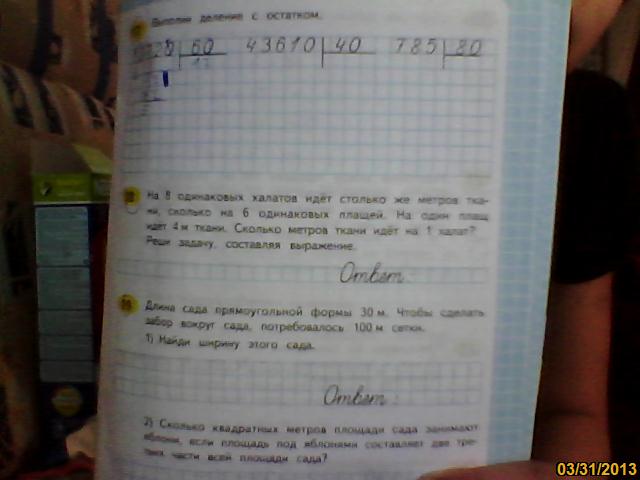 Выполни деление с остатком.
60 43610 40 785 80
На 8 одинаковых халатов идёт столько же метров тка-
ни, сколько на 6 одинаковых плащей. На один плащ
идёт 4 м ткани. Сколько метров ткани идёт на 1 халат?
Реши задачу, составляя выражение.
Ответ:
Длина сада прямоугольной формы 30 м. Чтобы сделать
забор вокруг сада, потребовалось 100 м сетки.
1) Найди ширину этого сада.
Ответ:
2) Сколько квадратных метров площади сада занимают
яблони, если площадь под яблонями составляет две тре-
тьих части всей площади сада?
03/31/2013